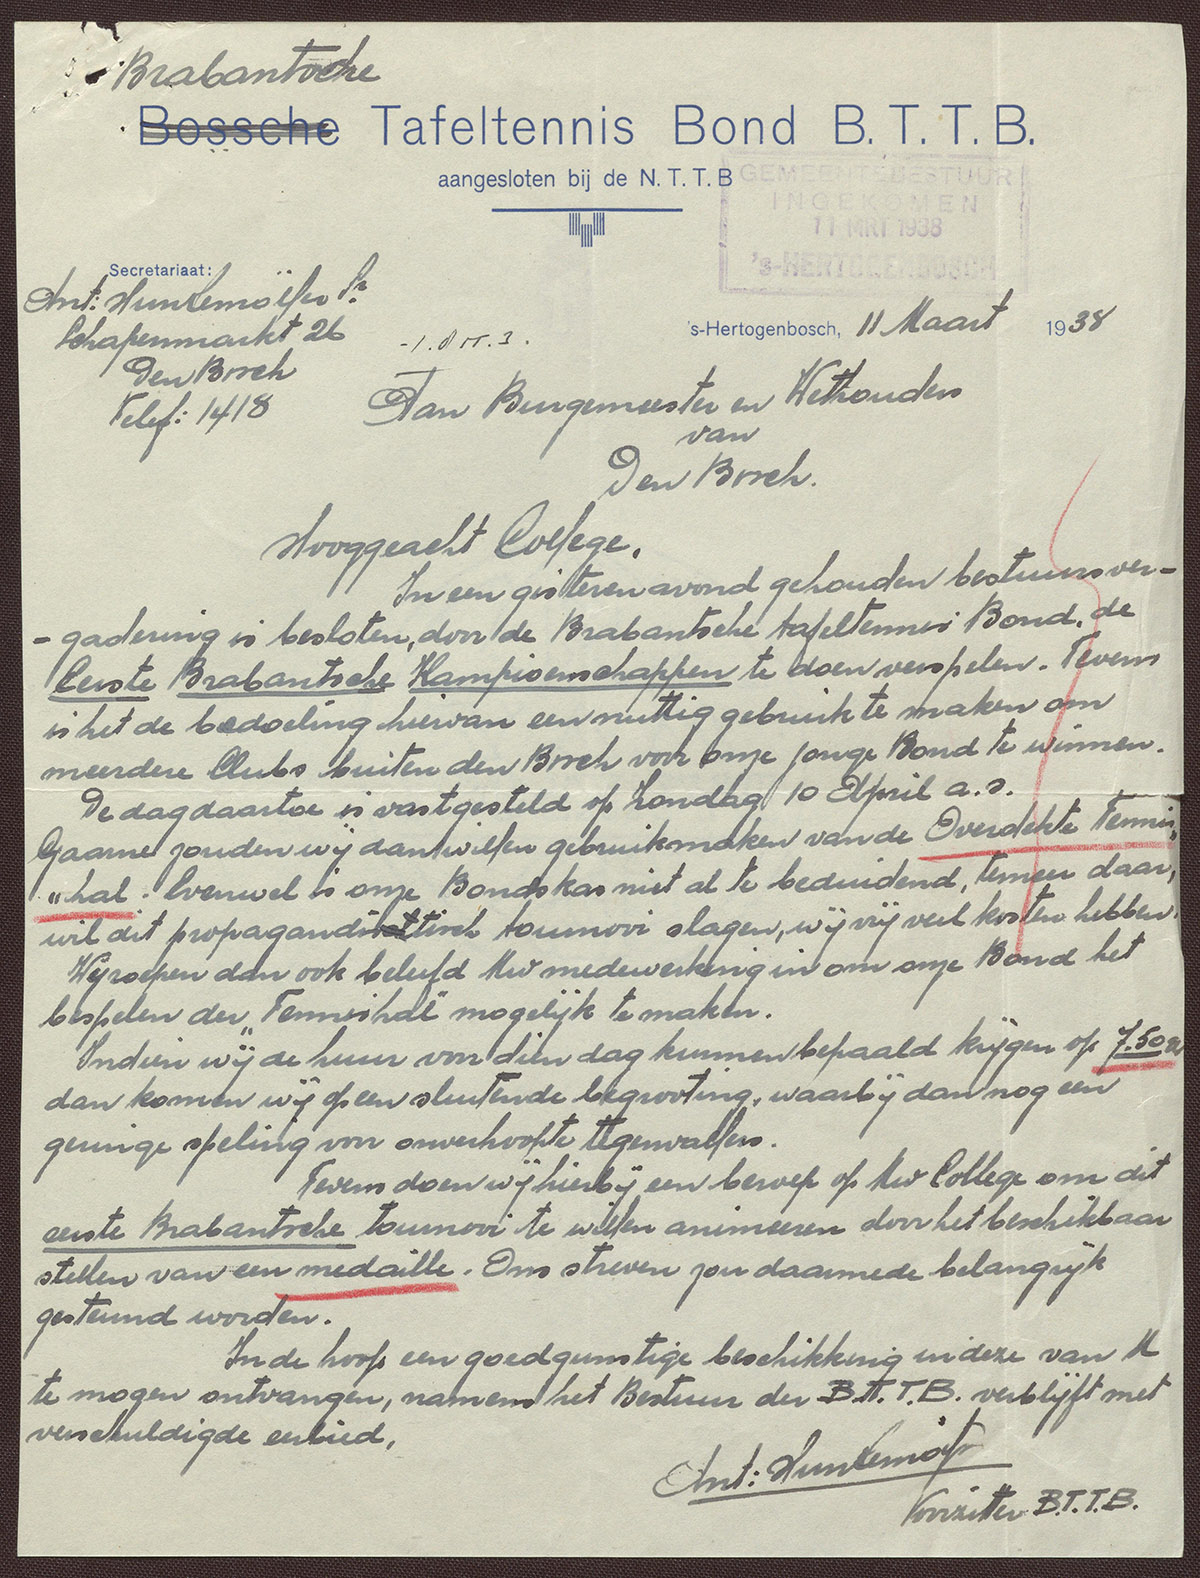 Brabantsche
Bossche Tafeltennis Bond B.T.T.B.
aangesloten bij de N.T.T.B
GEMEENTEBESTUUR
INGEKOMEN
11 MRT 1938
's-HERTOGENBOSCH
Secretariaat:
Ant: Huntemöller Sr
Schapenmarkt 26
Den Bosch
Telef: 1418
's-Hertogenbosch, 11 Maart 1938
Aan Burgemeester en Wethouders
van
Den Bosch.
Hooggeacht College.
In een gisterenavond gehouden bestuursver-
-gadering is besloten, door de Brabantsche tafeltennis Bond, de
Eerste Brabantsche Kampioenschappen te doen verspelen. Tevens
is het de bedoeling hiervan een nuttig gebruik te maken om
meerdere Clubs buiten den Bosch voor onze jonge Bond te winnen.
De dag daartoe is vastgesteld op Zondag 10 April a.s.
Gaarne zouden wij dan willen gebruikmaken van de Overdekte Tennis„
„hal. Evenwel is onze Bondskas niet al te beduidend, temeer daar,
wil dit propagandistisch tournooi slagen, wij vrij veel kosten hebben.
Wij roepen dan ook beleefd Uw medewerking in om onze Bond het
bespelen der „Tennishal" mogelijk te maken.
Indien wij de huur voor dien dag kunnen bepaald krijgen op 7.50
dan komen wij op een sluitende begrooting, waarbij dan nog een
geringe speling voor onverhoopte tegenvallers.
Tevens doen wij hierbij een beroep op Uw College om dit
eerste Brabantsche tournooi te willen animeeren door het beschikbaar
stellen van een medaille. Ons streven zou daarmede belangrijk
gesteund worden.
In de hoop een goedgunstige beschikking in deze van U
te mogen ontvangen, namens het Bestuur der B.T.T.B. verblijft met
verschuldigde eerbied,
Ant: Huntemöller
Voorzitter B.T.T.B.